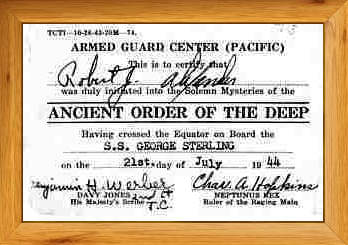 TCTI—10-26-43-20M—74.
ARMED GUARD CENTER (PACIFIC)
This is to certify that
Robert J.
was duly initiated into the Solemn Mysteries of the
ANCIENT ORDER OF THE DEEP
Having crossed the Equator on Board the
S.S. GEORGE STERLING
on the 21st. day of July 1944
Benjamin H. Werber Chas. A Hopkins
DAVY JONES NEPTUNUS REX
His Majesty's Scribe Ruler of the Raging Main